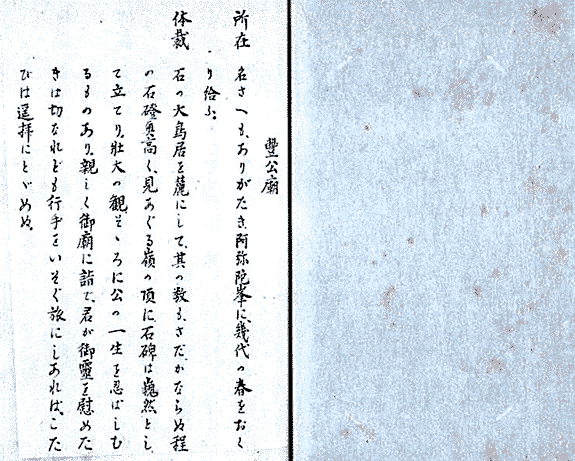 豐公廟
所在 名さへも、ありがたき、阿弥陀峯に、幾代の春をおく
り給ふ。
体裁 石の大鳥居を麓にして、其の数も、さだかならぬ程
の石磴奥高く、見あぐる嶺の頂に石碑は巍然とし
て立てり。壮大の観そゝろに公の一生を忍ばしむ
るものあり。親しく御廟に詣で、君が御靈を慰めた
きは切なれども行手をいそぐ旅にしあれば、こた
びは遥拝にとゞめぬ。